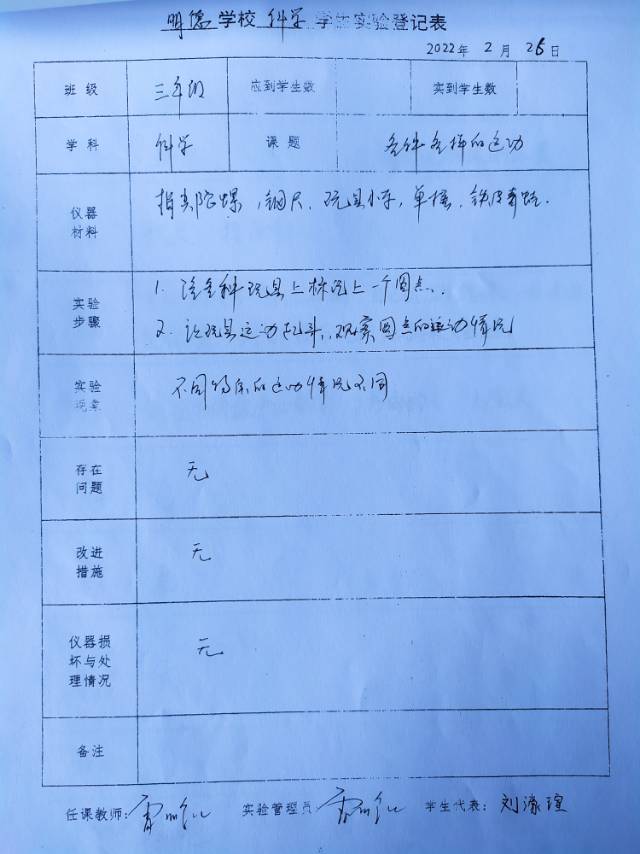 明德学校科学学生实验登记表
2022年2月25日
班级 三年级 应到学生数 实到学生数
学科 科学 课题 各种各样的运动
仪器材料 指尖陀螺,钢尺,玩具小车,单摆,铁皮青蛙.
实验步骤 1. 给各种玩具上标记上一个圆点.
2. 让玩具运动起来,观察圆点的运动情况
实验现象 不同物体的运动情况不同
存在问题 无
改进措施 无
仪器损坏与处理情况 无
备注
任课教师: 实验管理员 学生代表: 刘